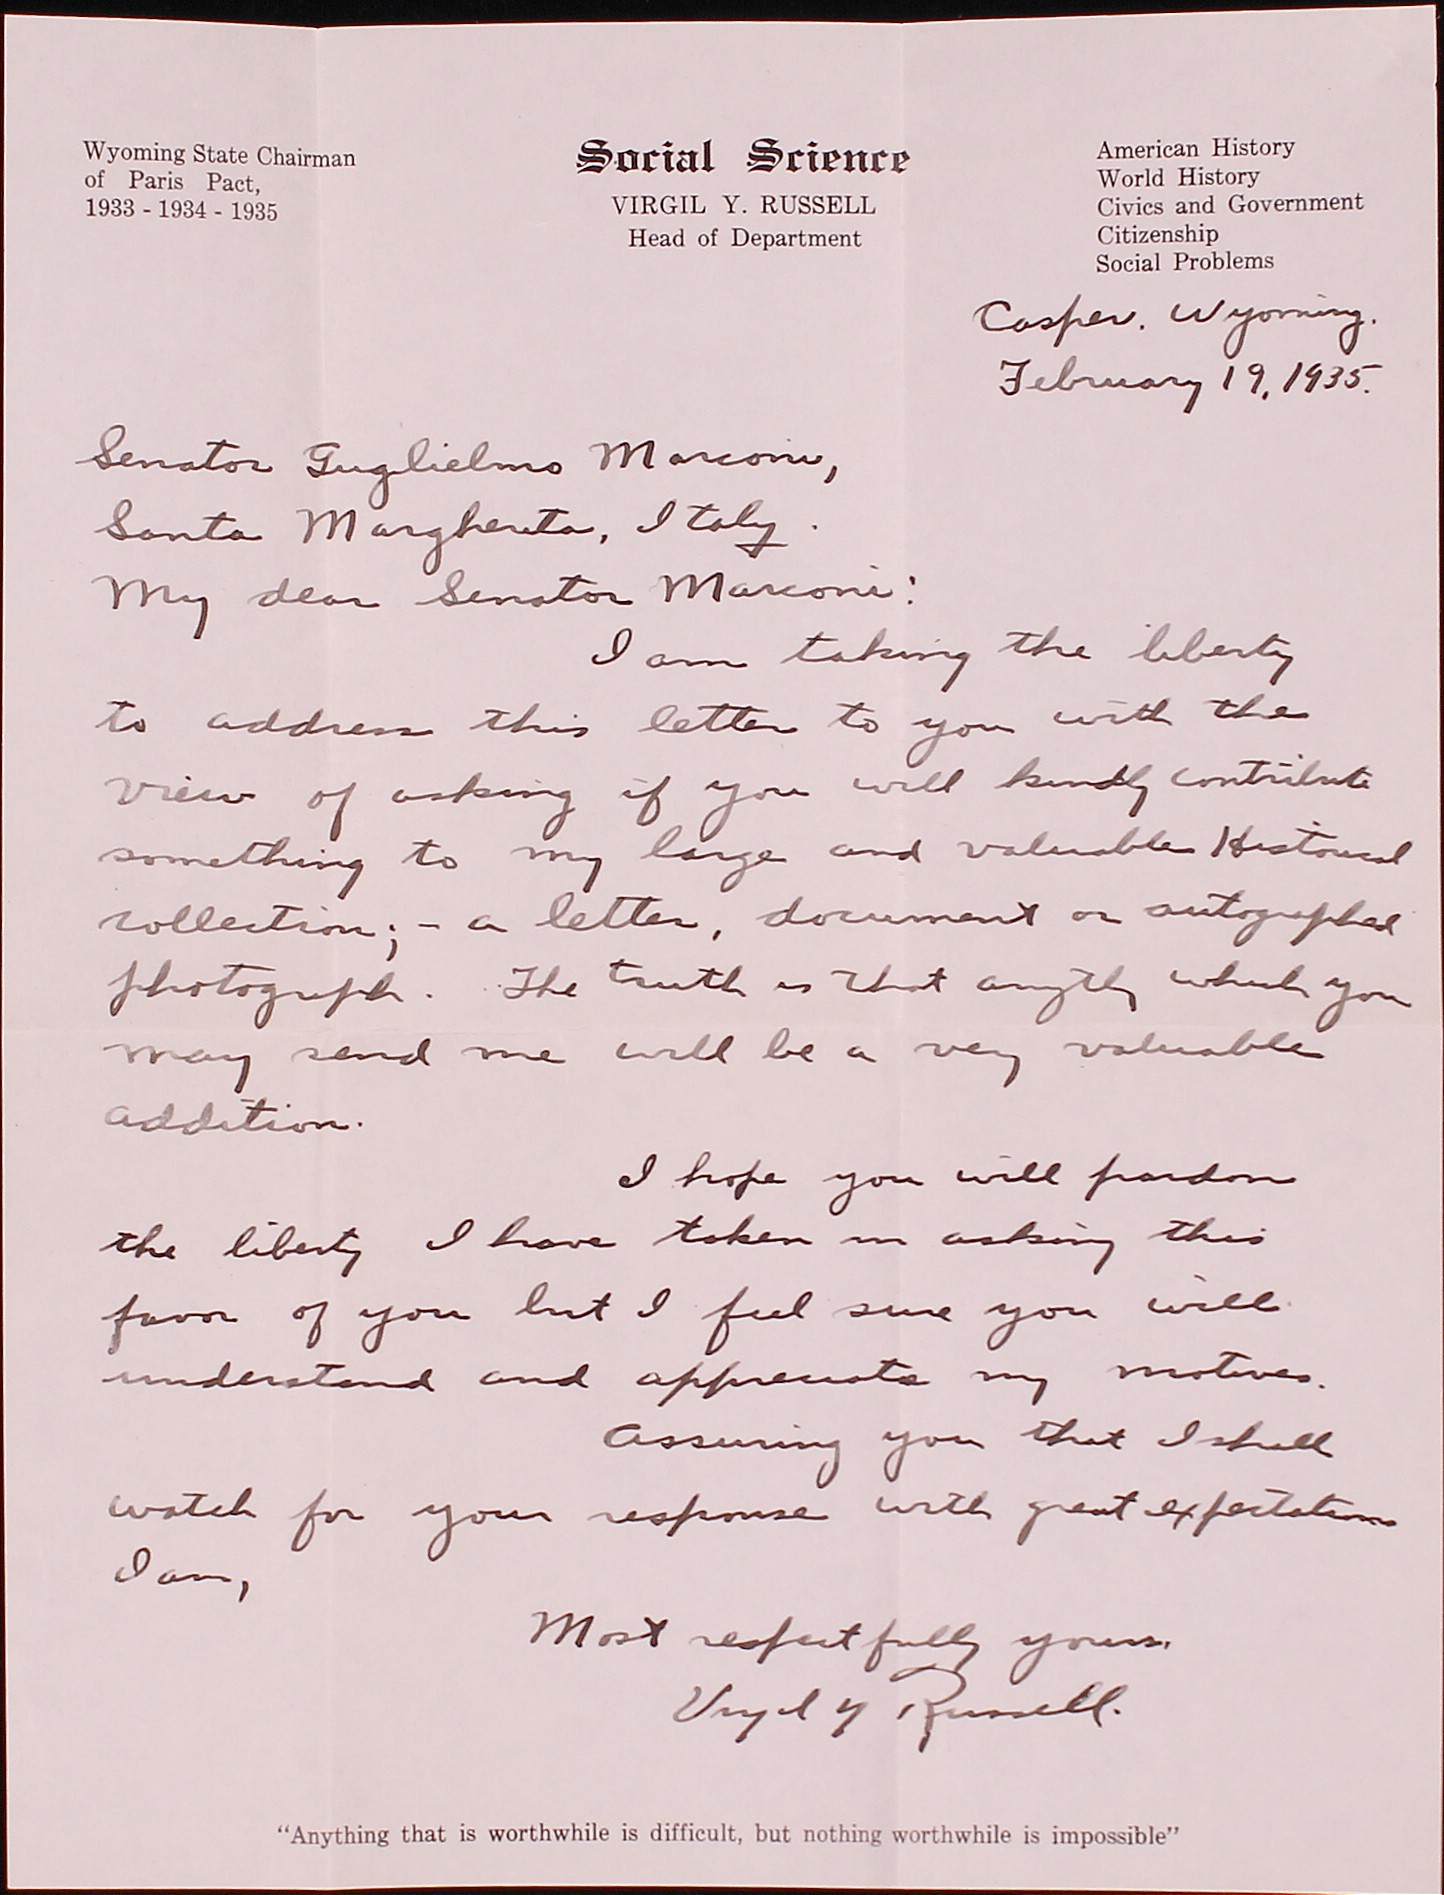 Wyoming State Chairman
of Paris Pact,
1933 - 1934 - 1935
Social Science
VIRGIL Y. RUSSELL
Head of Department
American History
World History
Civics and Government
Citizenship
Social Problems
Casper. Wyoming.
February 19, 1935.
Senator Guglielmo Marconi,
Santa Margherita, Italy.
My dear Senator Marconi:
I am taking the liberty
to address this letter to you with the
view of asking if you will kindly contribute
something to my large and valuable Historical
collection; - a letter, document or autographed
photograph. The truth is that anythg which you
may send me will be a very valuable
addition.
I hope you will pardon
the liberty I have taken in asking this
favor of you but I feel sure you will
understand and appreciate my motives.
Assuring you that I shall
watch for your response with great expectations
I am,
Most respectfully yours,
Virgil Y Russell.
"Anything that is worthwhile is difficult, but nothing worthwhile is impossible"